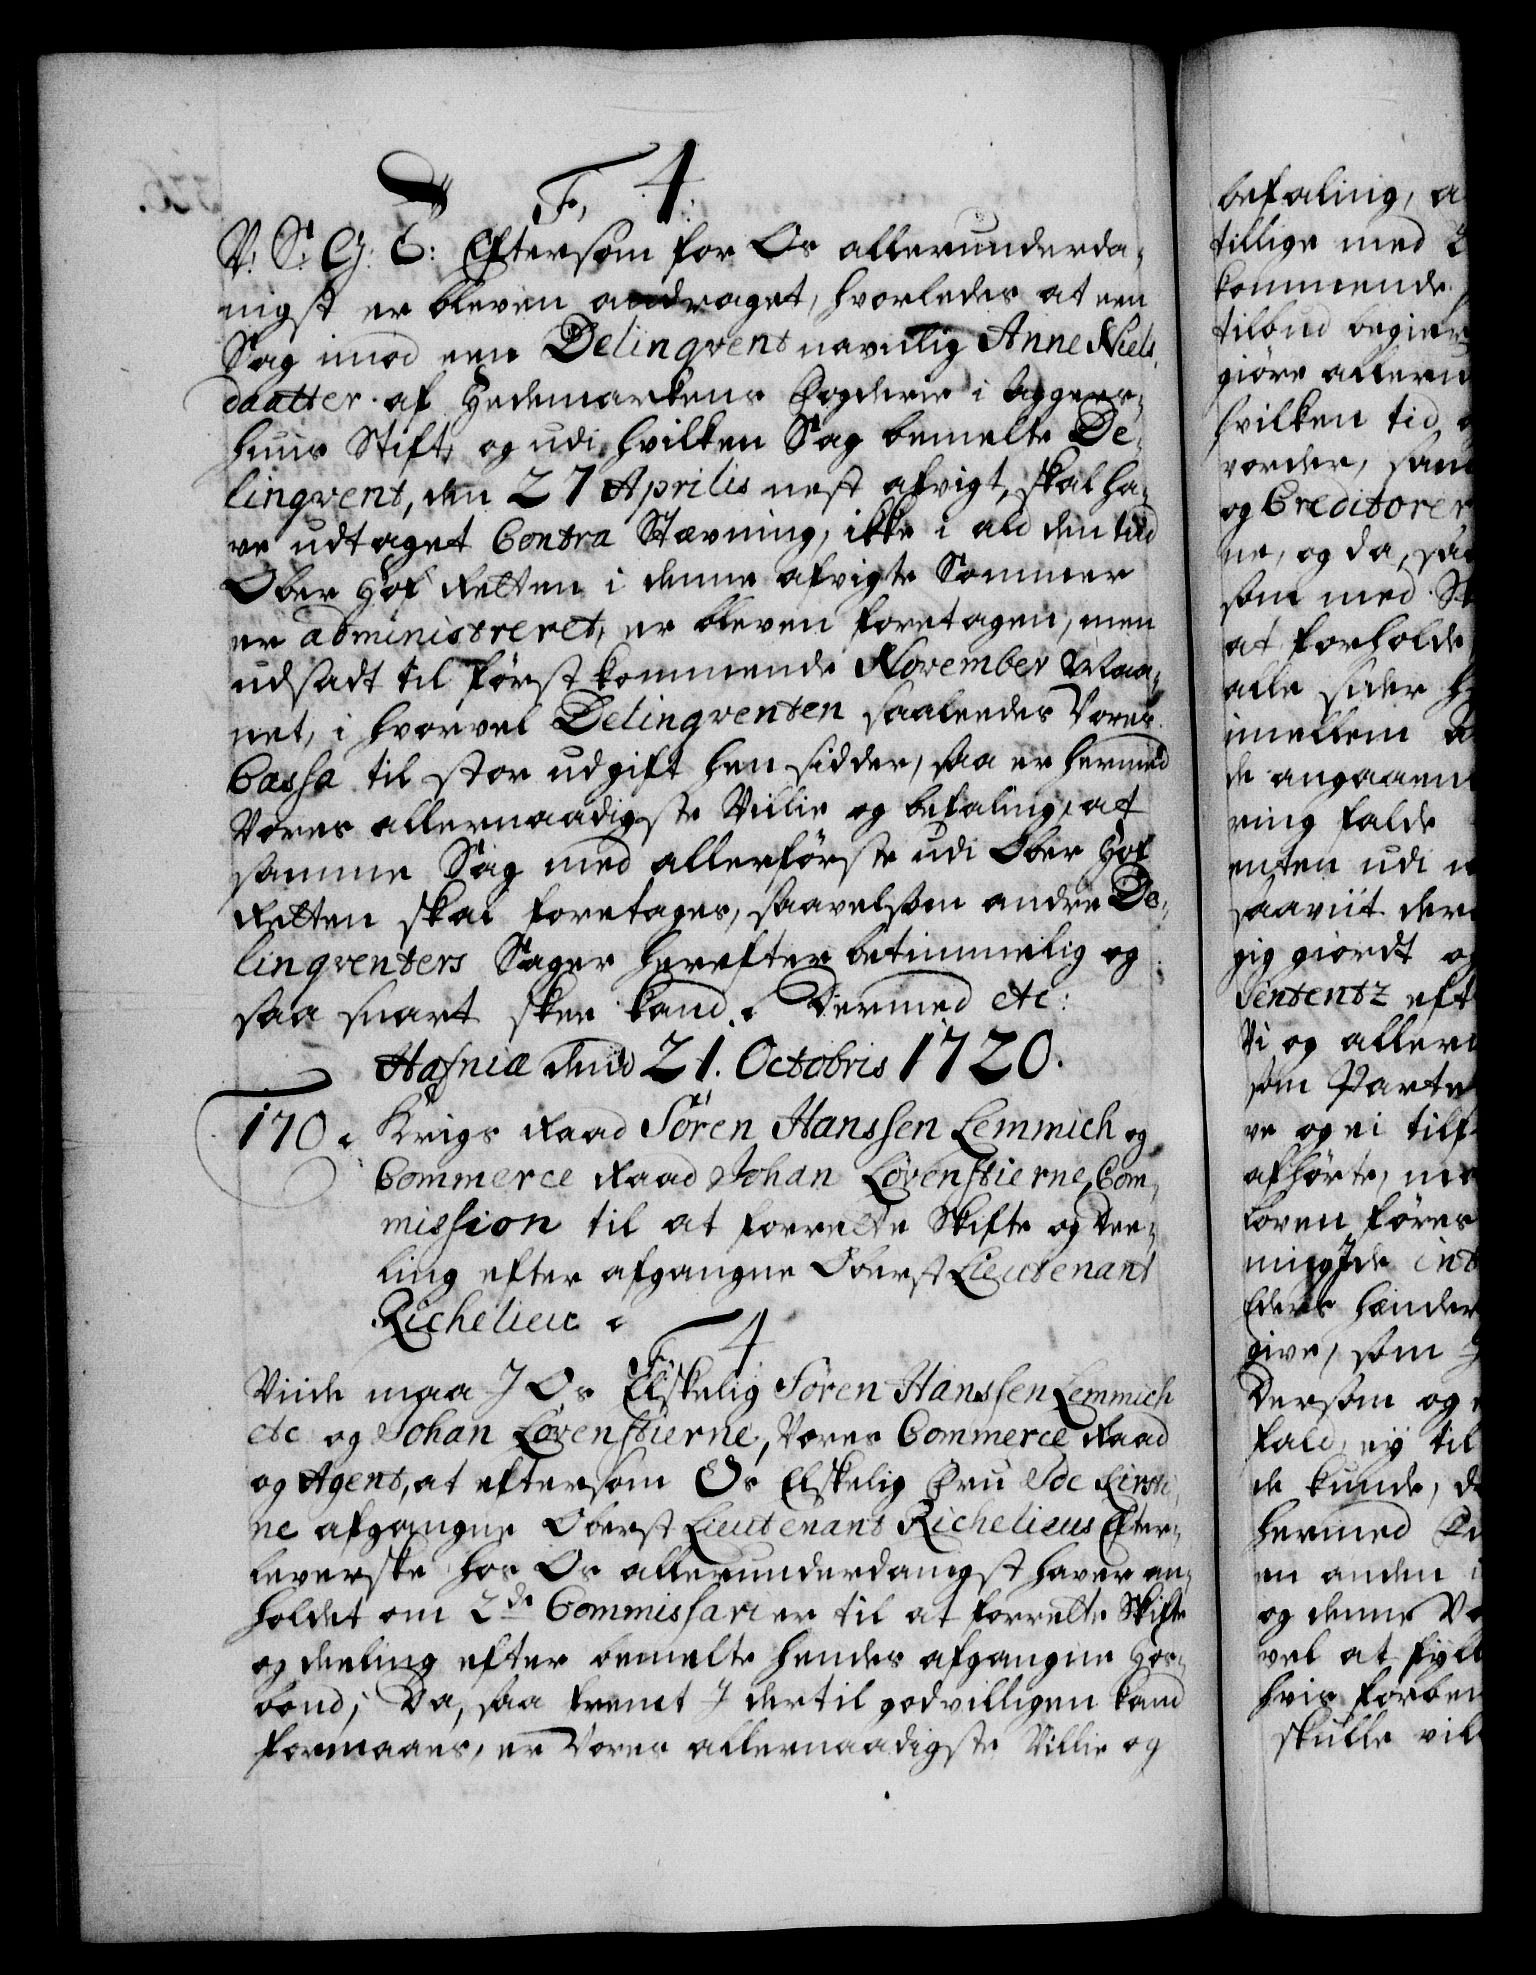 F. 4.
V: S: G: E: Eftersom for Os allerunderda-
nigst er bleven andraget, hvorledes at een
Sag imod een Delinqvent navnlig Anne Niels
daatter af Hedemarkens Fogderie i Aggers-
huus Stift, og udi hvilken Sag bemelte De-
linqvent, den 27 Aprilis nest afvigt, skal ha-
ve udtaget Contra Stævning, ikke i ald den tiid
Ober Hof Retten i denne afvigte Sommer
er administreret, er bleven foretagen, men
udsadt til først kommende November Maa-
net, i hvorvel Delinqventen saaleedes Vores
Cassa til stor udgift hen sidder, saa er hermed
Vores allernaadigste Villie og befaling, at
samme Sag med allerførste udi Ober Hof
Retten skal foretages, saavelsom andre De-
linqventers Sager herefter betimmelig og
saa snart skee kand. Dermed etc:
Hafniæ dend 21. Octobris 1720.
170. Krigs Raad Sören Hanssen Lemmich og
Commerce Raad Johan Lövenstierne, Com-
mission til at forrette Skifte og Dee-
ling efter afgangne Oberst Lieutenant
Richelieu.
F. 4
Viide maa J Os Elskelig Sören Hanssen Lemmich
etc og Johan Lövenstierne, Vores Commerce Raad
og Agent, at eftersom Os Elskelig Fru Ide Kirsti-
ne afgangne Oberst Lieutenant Richelieus Efter-
leverske hos Os allerunderdanigst haver an-
holdet om 2de Commissarier til at forrette Skifte
og deeling efter bemelte hendes afgangne Hos-
bond; Da, saa fremt J dertil godvilligen kand
formaaes, er Vores allernaadigste Villie og
befaling, a
tillige med
kommende
tilbud begier
giöre alleru
hvilken tid
vorder, sam
og Creditorer
ne, og da, saa
som med
at forholde
alle sider
imellem
de angaaen
ring falde
enten udi
saaviit der
gig giordt og
Sententz eft
Vi og allern
som Parte
ve og ei tilf
afhörte, me
Loven föres
int
Eders hænder
give, som J
Dersom og
fald ey til
de kunde, d
hermed
en anden
og denne Vo
vel at fyld
hvis forben
skulle vil